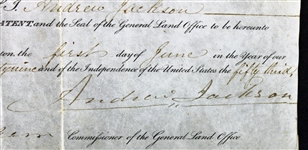 I, Andrew Jackson
PATENT, and the Seal of the General Land Office to be hereunto
on, the first day of June in the Year of our
tynine and of the Independence of the United States the fifty third
Andrew Jackson
Commissioner of the General Land Office